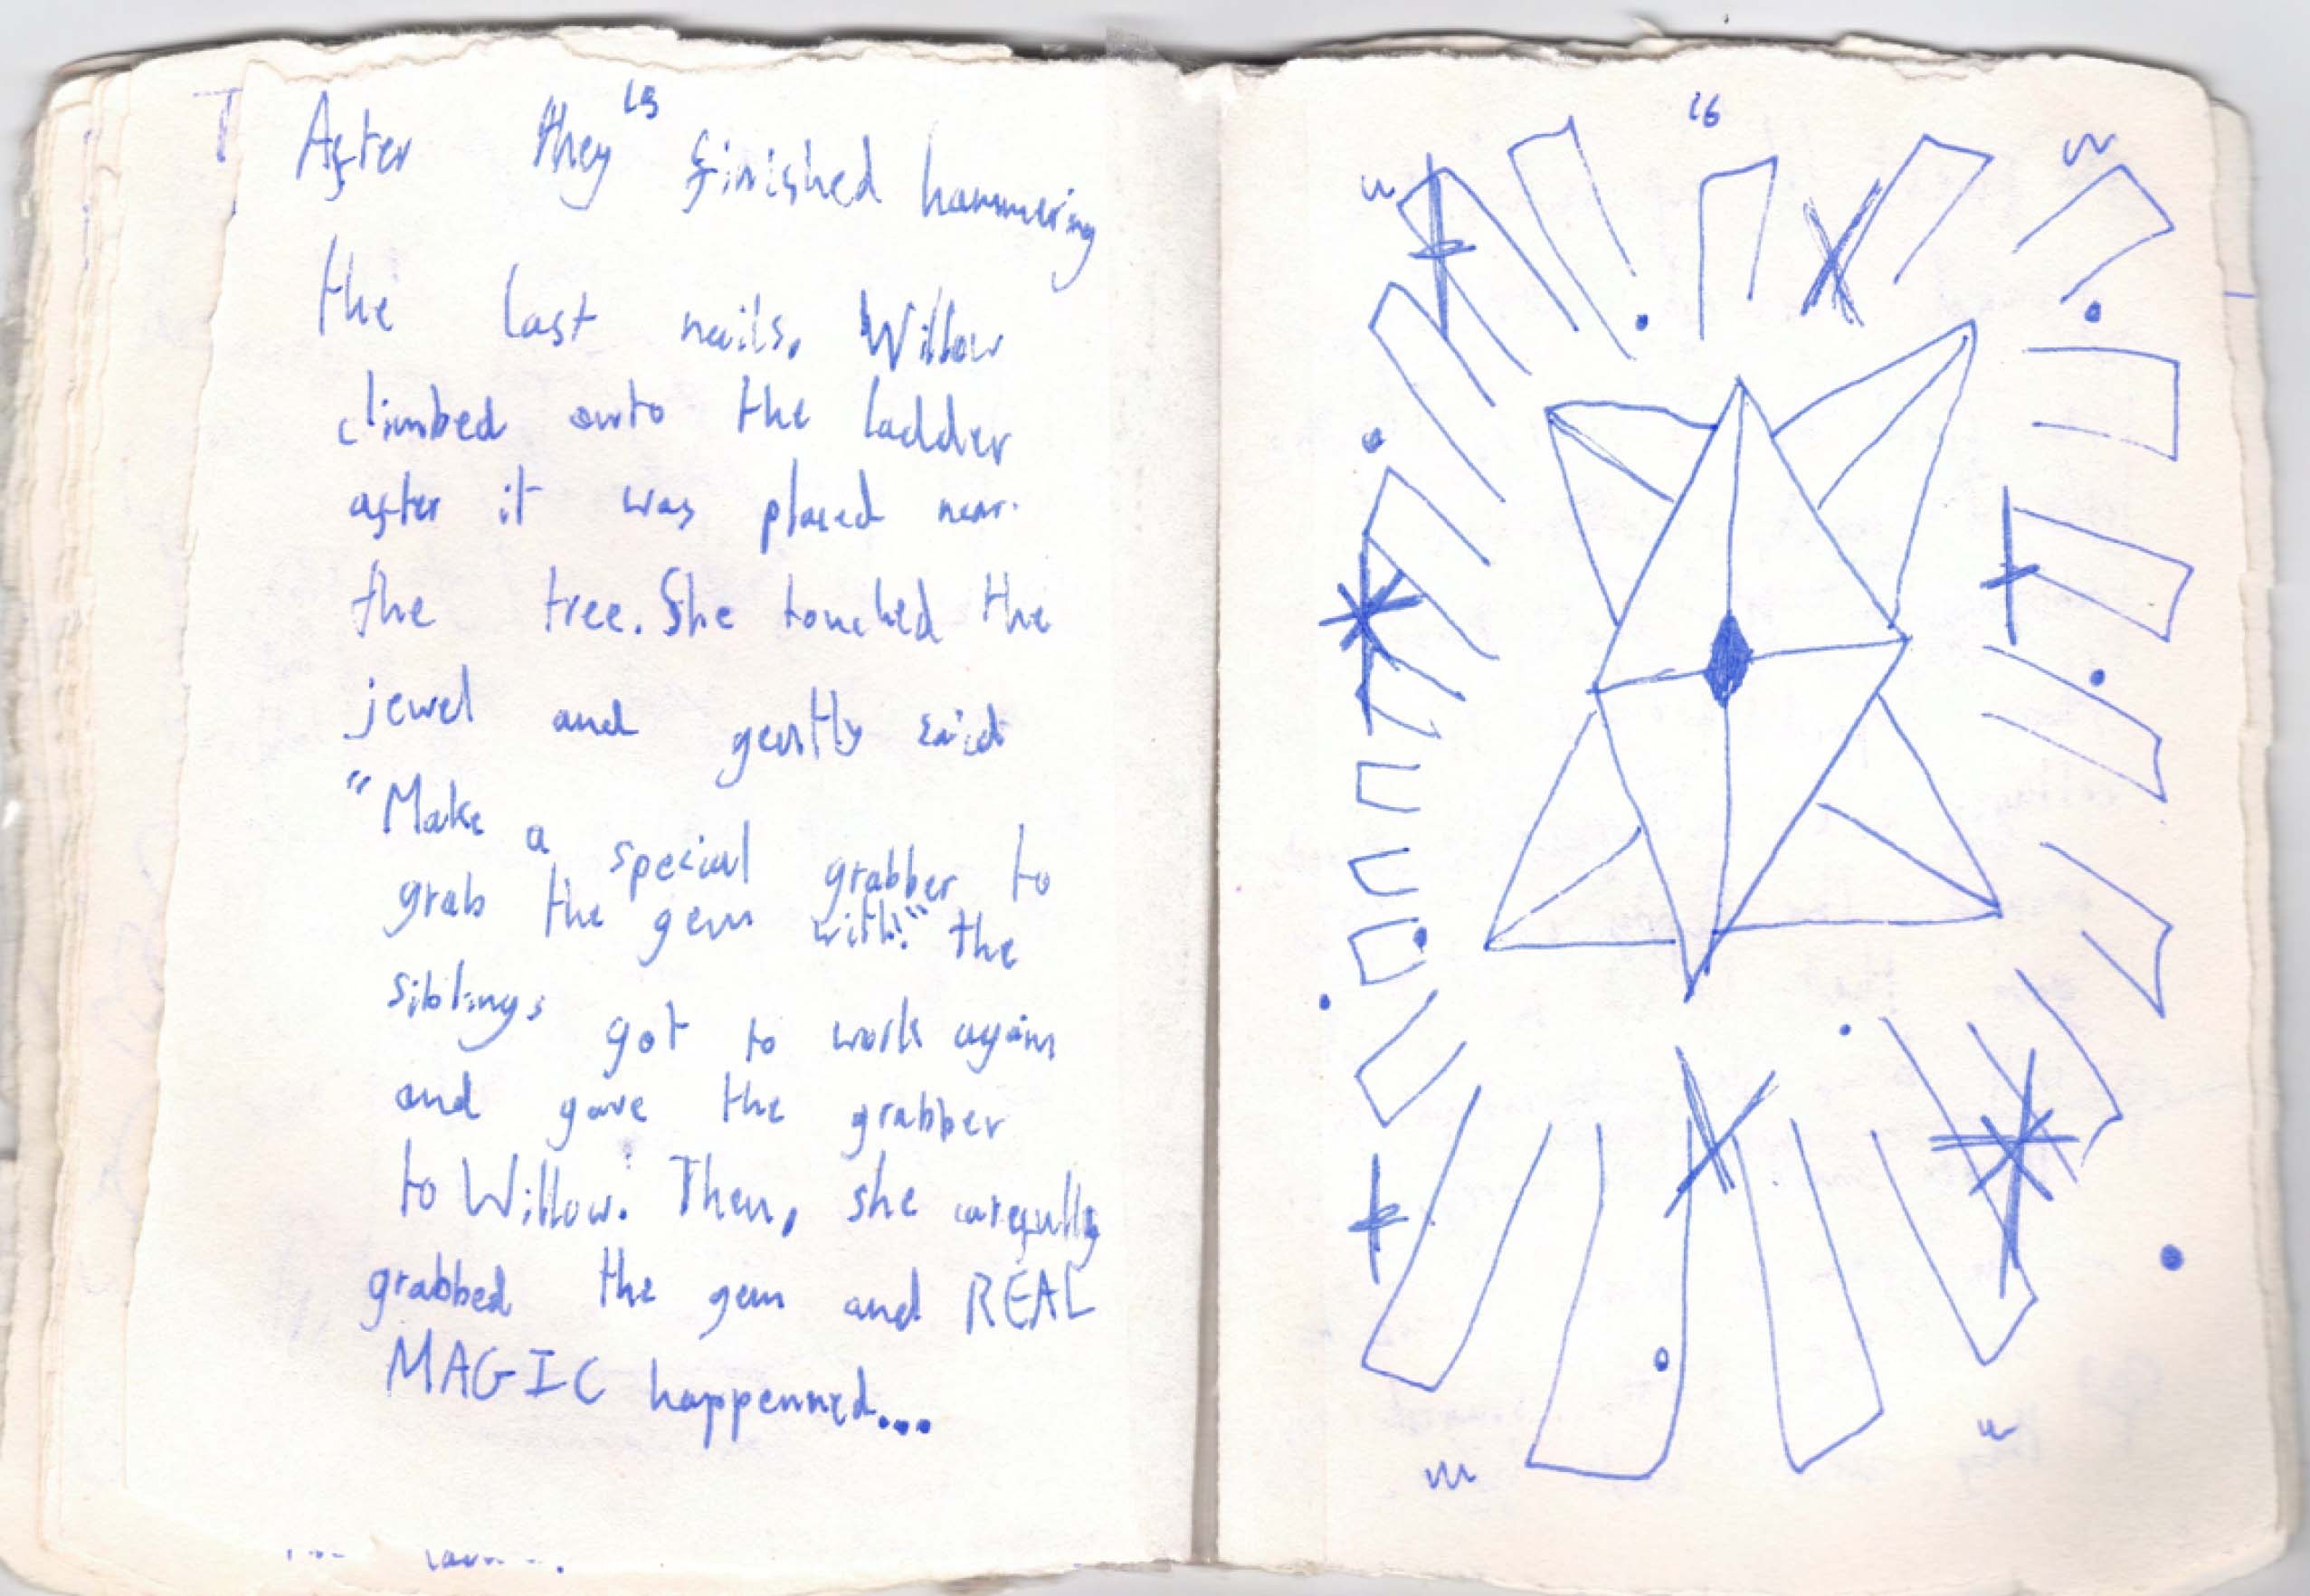 15
After they finished hammering
the last nails, Willow
climbed onto the ladder
after it was placed near
the tree. She touched the
jewel and gently said
"Make a special grabber to
grab the gem with!" the
siblings got to work again
and gave the grabber
to Willow. Then, she carefully
grabbed the gem and REAL
MAGIC happenned...
16